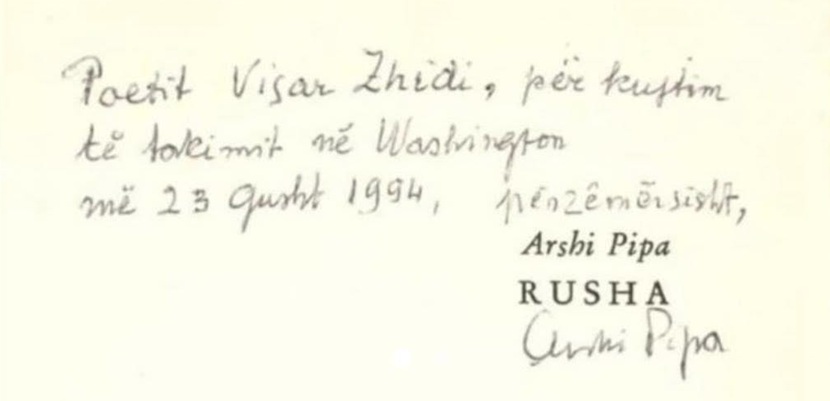 Poetit Visar Zhidi, për kujtim
të takimit në Washington
më 23 Gusht 1994, përzêmërsisht,
Arshi Pipa
RUSHA
Arshi Pipa